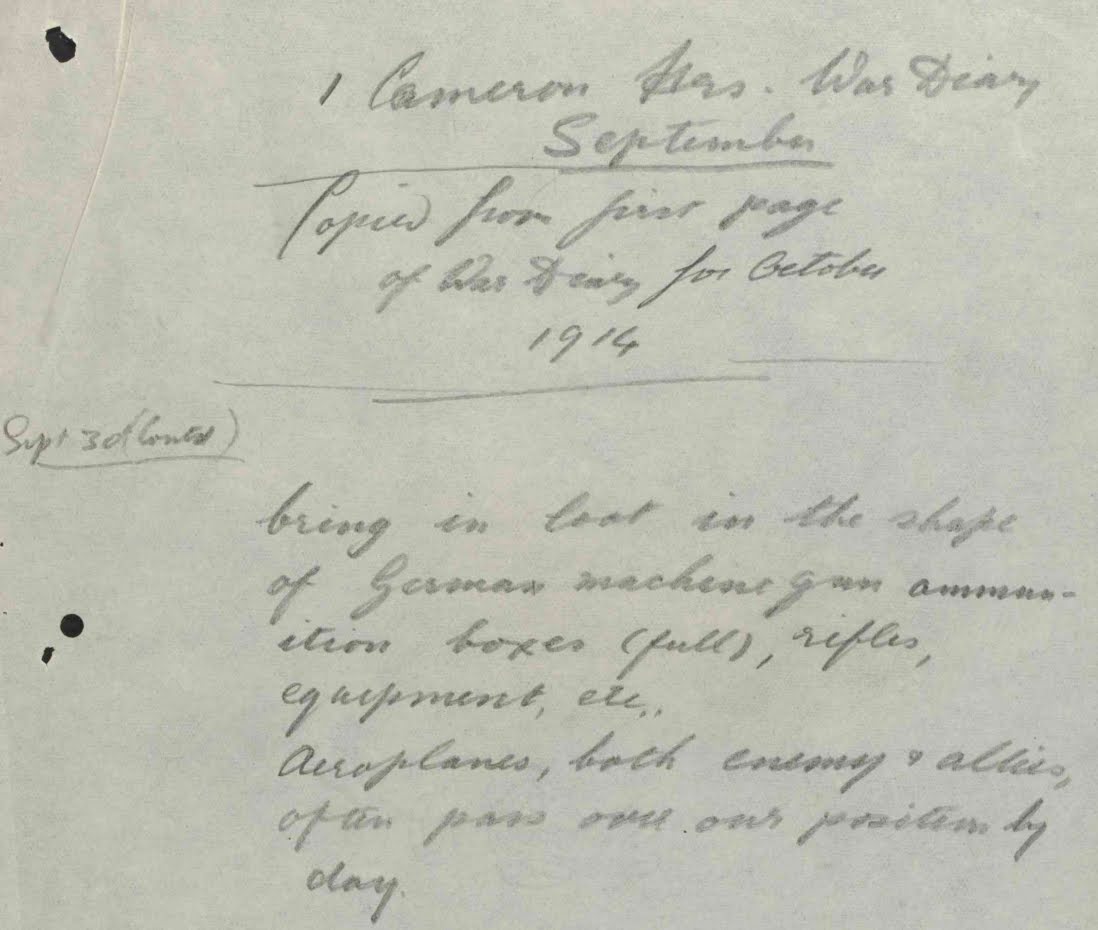 1 Cameron Hrs. War Diary
September
Copied from first page
of War Diary for October
1914
Sept 30 (Contd)
bring in loot in the shape
of German machine gun ammun-
ition boxes (full), rifles,
equipment, etc.,
Aeroplanes, both enemy & allies,
often pass over our position by
day.